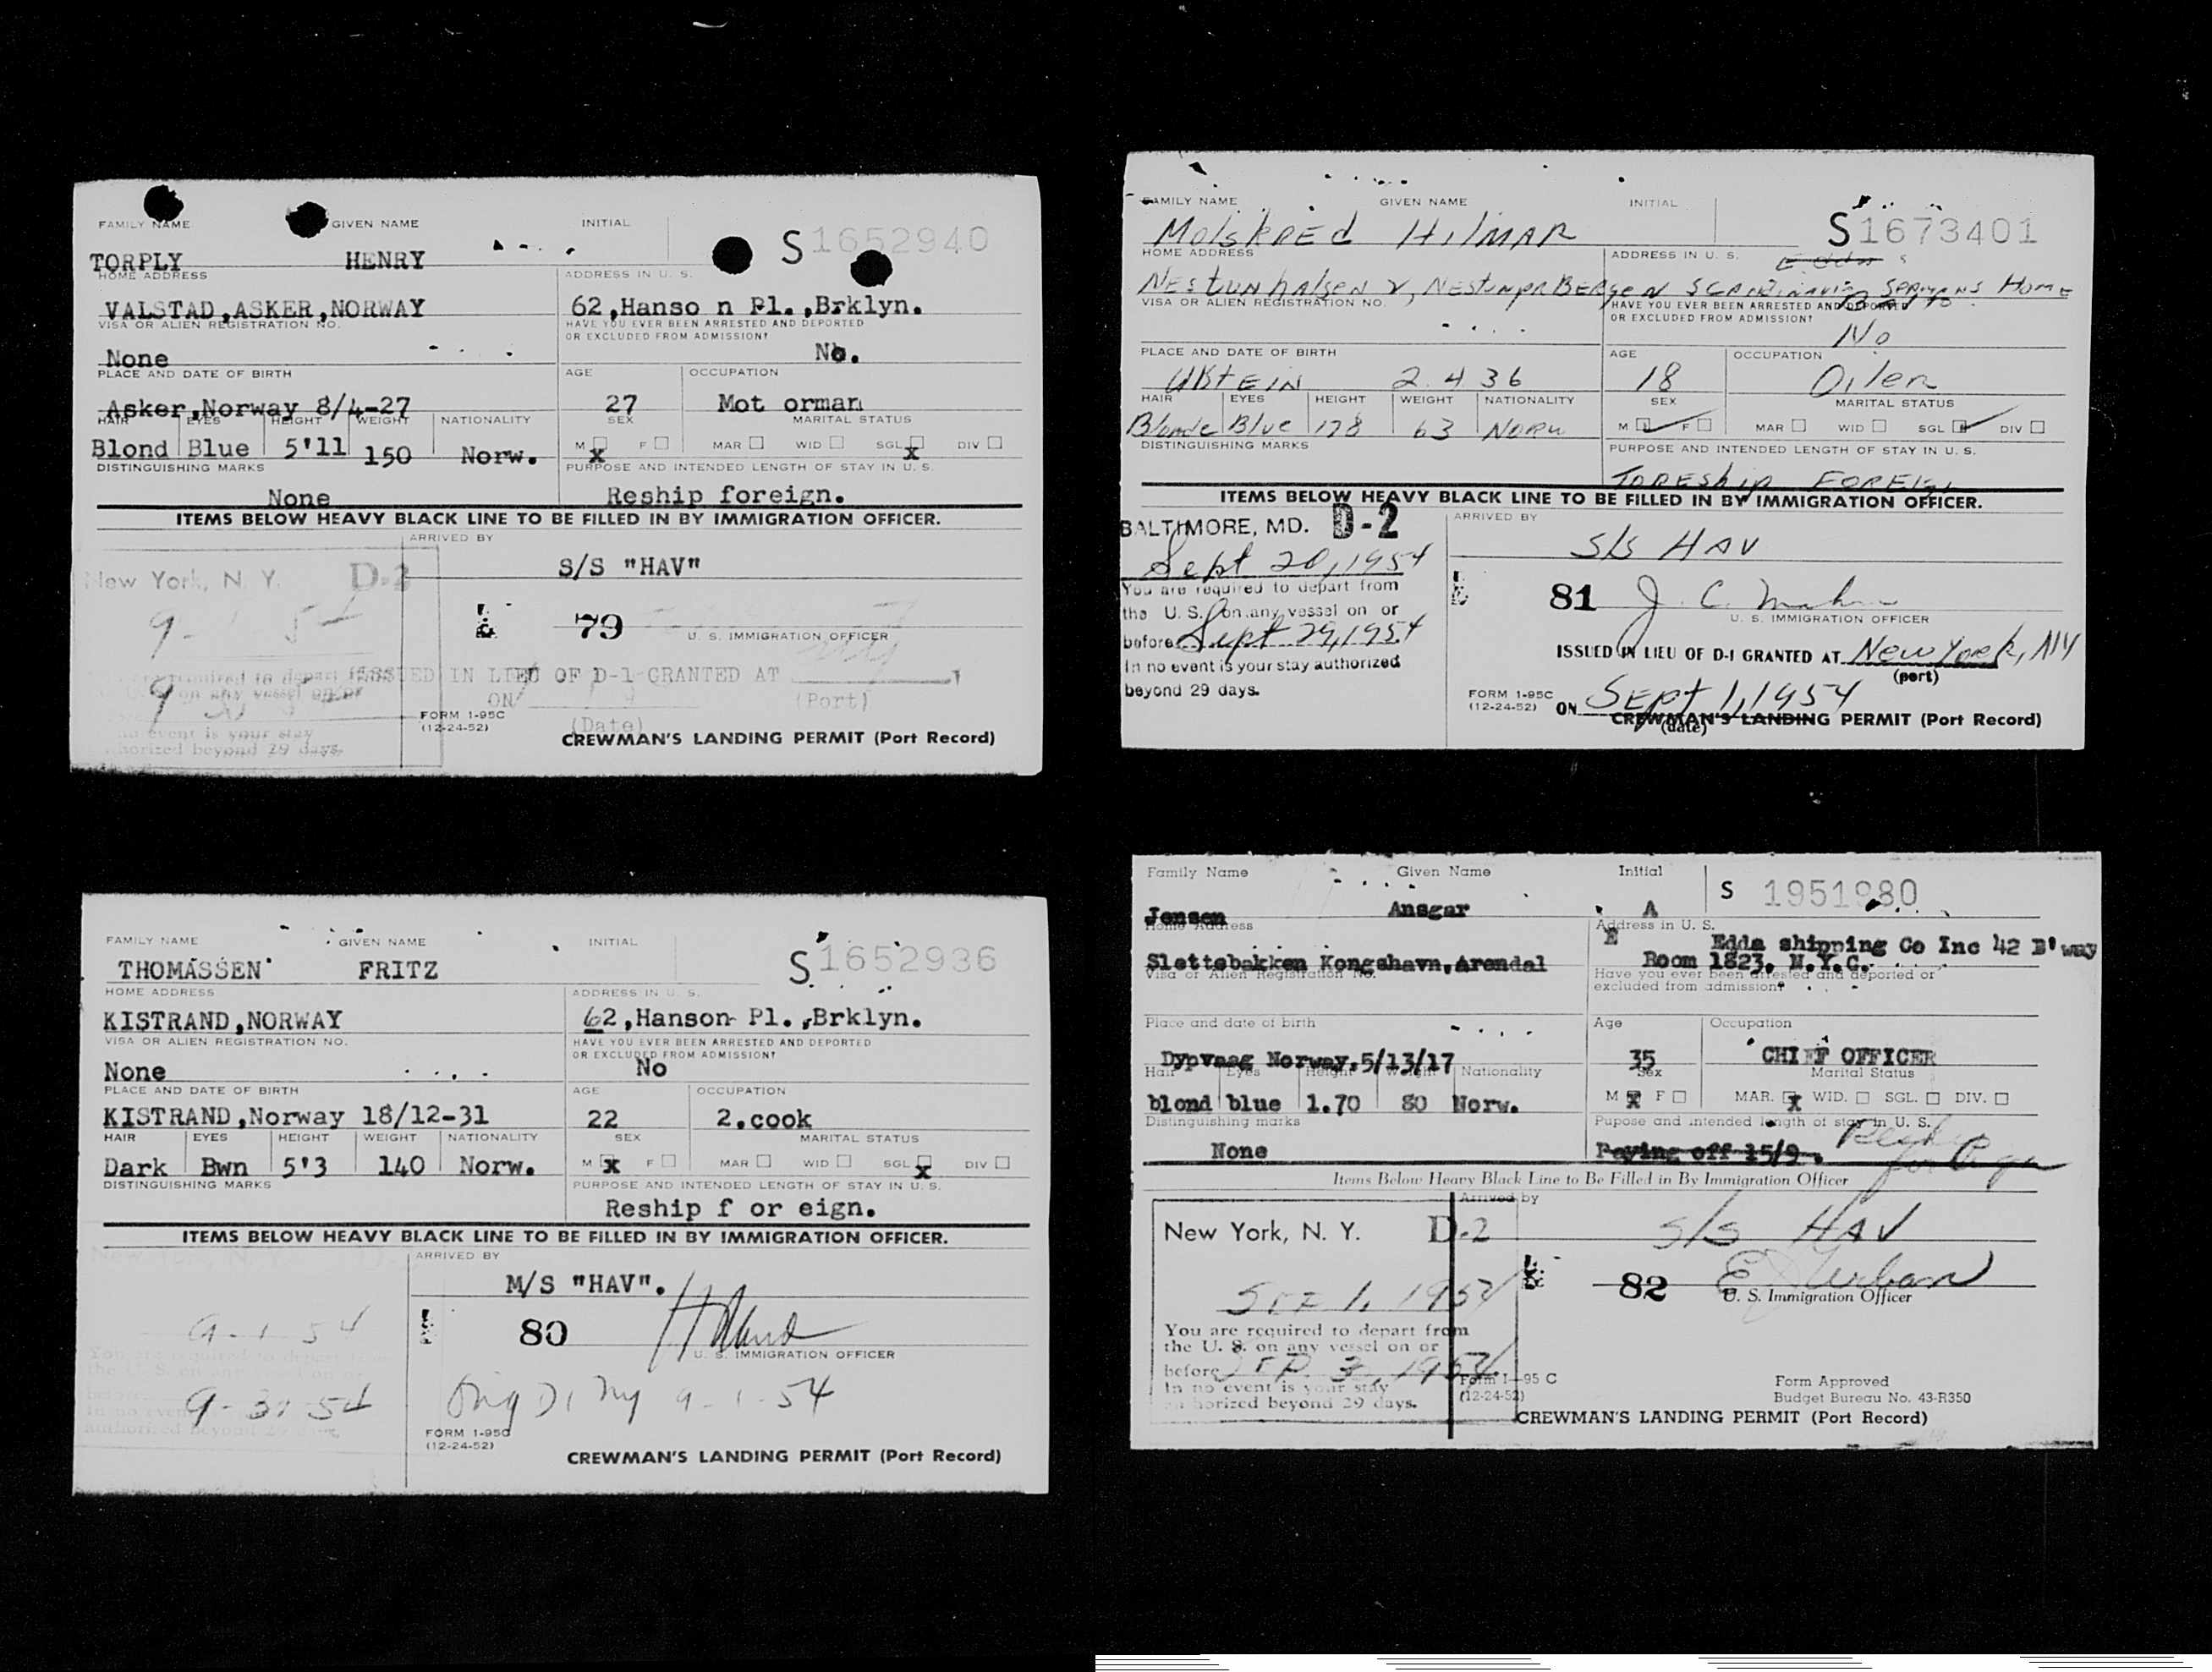 FAMILY NAME GIVEN NAME INITIAL
S1652940
TORPLY HENRY
HOME ADDRESS ADDRESS IN U. S.
VALSTAD,ASKER,NORWAY 62,Hanso n Pl.,Brklyn.
VISA OR ALIEN REGISTRATION NO. HAVE YOU EVER BEEN ARRESTED AND DEPORTED
OR EXCLUDED FROM ADMISSION?
None No.
PLACE AND DATE OF BIRTH AGE OCCUPATION
Asker,Norway 8/4-27 27 Mot orman
HAIR EYES HEIGHT WEIGHT NATIONALITY SEX MARITAL STATUS
Blond Blue 5'11 150 Norw. M X F MAR WID SGL X DIV
DISTINGUISHING MARKS PURPOSE AND INTENDED LENGTH OF STAY IN U. S.
None Reship foreign.
ITEMS BELOW HEAVY BLACK LINE TO BE FILLED IN BY IMMIGRATION OFFICER.
ARRIVED BY
New York, N. Y. D-2 S/S "HAV"
79
U. S. IMMIGRATION OFFICER
ISSUED IN LIEU OF D-1 GRANTED AT
ON (Port)
FORM I-95C
(12-24-52) (Date)
event is your stay
beyond 29 days.
CREWMAN'S LANDING PERMIT (Port Record)
FAMILY NAME GIVEN NAME INITIAL
S1673401
Molskred Hilmar
HOME ADDRESS ADDRESS IN U. S.
Home
VISA OR ALIEN REGISTRATION NO. HAVE YOU EVER BEEN ARRESTED AND DEPORTED
OR EXCLUDED FROM ADMISSION?
No
PLACE AND DATE OF BIRTH AGE OCCUPATION
2.4 36 18 Oiler
HAIR EYES HEIGHT WEIGHT NATIONALITY SEX MARITAL STATUS
Blonde Blue 178 63 Norw M F MAR WID SGL DIV
DISTINGUISHING MARKS PURPOSE AND INTENDED LENGTH OF STAY IN U. S.
To Reship
ITEMS BELOW HEAVY BLACK LINE TO BE FILLED IN BY IMMIGRATION OFFICER.
BALTIMORE, MD. D-2 ARRIVED BY
Sept 20, 1954 S/S HAV
You are required to depart from
the U. S. on any vessel on or 81
before Sept 29, 1954 U. S. IMMIGRATION OFFICER
In no event is your stay authorized
beyond 29 days.
ISSUED IN LIEU OF D-1 GRANTED AT New York, NY
(port)
FORM I-95C
(12-24-52) ON Sept 1, 1954
(date)
CREWMAN'S LANDING PERMIT (Port Record)
FAMILY NAME GIVEN NAME INITIAL
S1652936
THOMASSEN FRITZ
HOME ADDRESS ADDRESS IN U. S.
KISTRAND,NORWAY 62,Hanson Pl.,Brklyn.
VISA OR ALIEN REGISTRATION NO. HAVE YOU EVER BEEN ARRESTED AND DEPORTED
OR EXCLUDED FROM ADMISSION?
None No
PLACE AND DATE OF BIRTH AGE OCCUPATION
KISTRAND,Norway 18/12-31 22 2.cook
HAIR EYES HEIGHT WEIGHT NATIONALITY SEX MARITAL STATUS
Dark Bwn 5'3 140 Norw. M X F MAR WID SGL X DIV
DISTINGUISHING MARKS PURPOSE AND INTENDED LENGTH OF STAY IN U. S.
Reship f or eign.
ITEMS BELOW HEAVY BLACK LINE TO BE FILLED IN BY IMMIGRATION OFFICER.
ARRIVED BY
M/S "HAV".
9-1-54 80
U. S. IMMIGRATION OFFICER
9-30-54 Orig D1 NY 9-1-54
FORM I-95C
(12-24-52)
CREWMAN'S LANDING PERMIT (Port Record)
Family Name Given Name Initial
S 1951980
Jensen Ansgar A
Home Address Address in U. S.
Edda shipping Co Inc 42 B'way
Slettebakken Kongshavn,Arendal Room 1823, N.Y.C.
Visa or Alien Registration No. Have you ever been arrested and deported or
excluded from admission?
Place and date of birth Age Occupation
Dypvaag Norway,5/13/17 35 CHIEF OFFICER
Hair Eyes Height Weight Nationality Sex Marital Status
blond blue 1.70 80 Norw. M X F MAR. X WID. SGL. DIV.
Distinguishing marks Pupose and intended length of stay in U. S.
None Paying off 15/9. Reship
Items Below Heavy Black Line to Be Filled in By Immigration Officer
Arrived by
New York, N. Y. D-2 S/S HAV
82
U. S. Immigration Officer
SEP 1, 1954
You are required to depart from
the U. S. on any vessel on or
before
In no event is your stay
authorized beyond 29 days.
Form I-95 C
(12-24-52)
Form Approved
Budget Bureau No. 43-R350
CREWMAN'S LANDING PERMIT (Port Record)